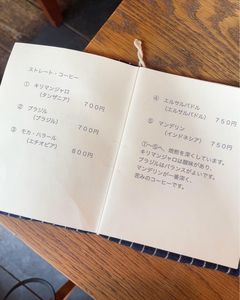 ストレート・コーヒー
① キリマンジャロ
(タンザニア)
700円
② ブラジル
(ブラジル)
700円
③ モカ・ハラール
(エチオピア)
800円
④ エルサルバドル
(エルサルバドル)
750円
⑤ マンデリン
(インドネシア)
750円
①〜⑤へ、焙煎を深くしています。
キリマンジャロは酸味があり、
ブラジルはバランスがよいです。
マンデリンが一番深く、
苦みのコーヒーです。